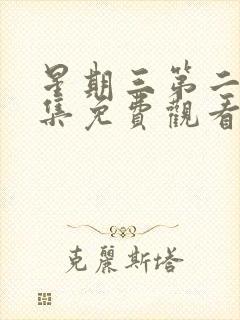 星期三第二
集免費觀看
克麗斯塔